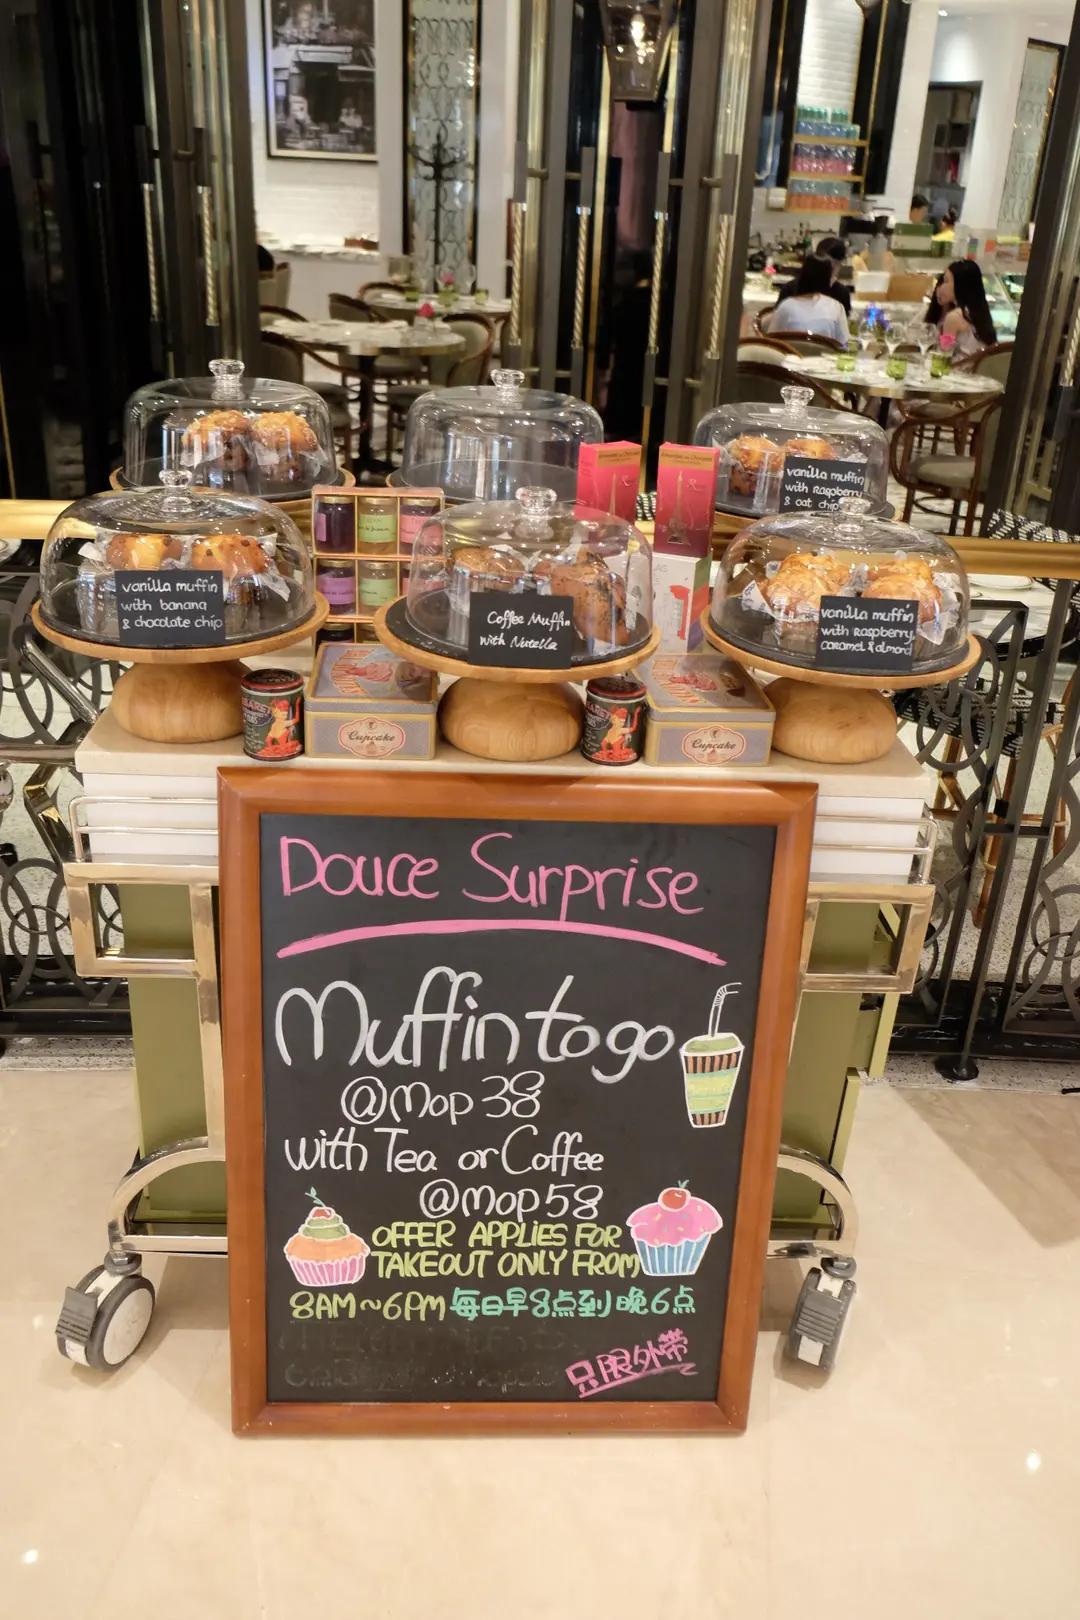 vanilla muffin
with Raspberry
& oat chip
vanilla muffin
with banana
& chocolate chip
Coffee Muffin
with Nutella
vanilla muffin
with raspberry,
caramel & almond
Cupcake
Cupcake
Douce Surprise
Muffin to go
@Mop 38
with Tea or Coffee
@Mop 58
OFFER APPLIES FOR
TAKEOUT ONLY FROM
8AM~6PM 每日早8点到晚6点
只限外带